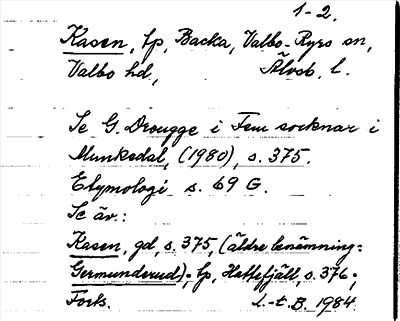 1-2.
Kasen, tp, Backa, Valbo-Ryrs sn,
Valbo hd, Älvsb. l.
Se G. Drougge i Fem socknar i
Munkedal, (1980), s. 375.
Etymologi s. 69 G.
Se äv.:
Kasen, gd, s. 375, (äldre benämning:
Germunderud); tp, Hattefjäll, s. 376;
Fork. L.-t. B. 1984